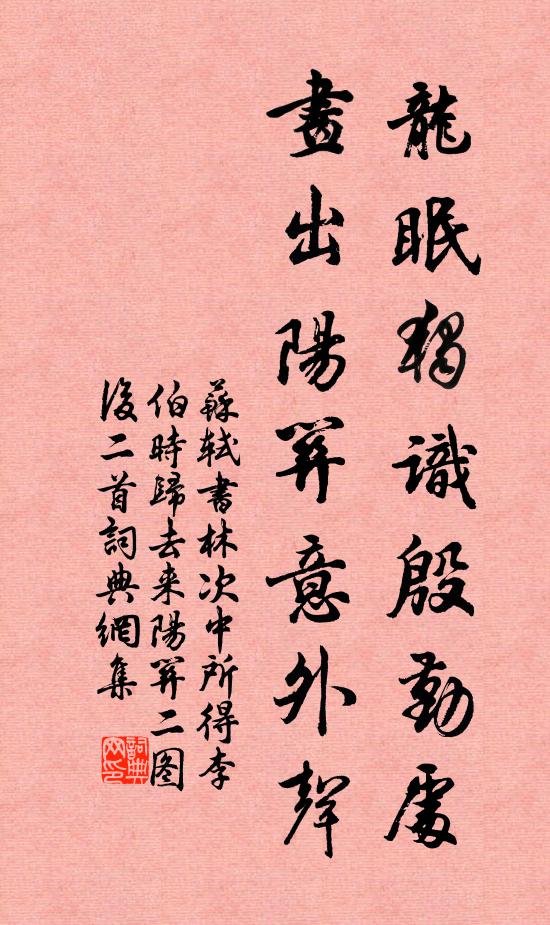 龍眠獨識殷勤處
畫出陽關意外聲
蘇軾書林次中所得李
伯時歸去来陽關二图
後二首詞典網集
詞典網印